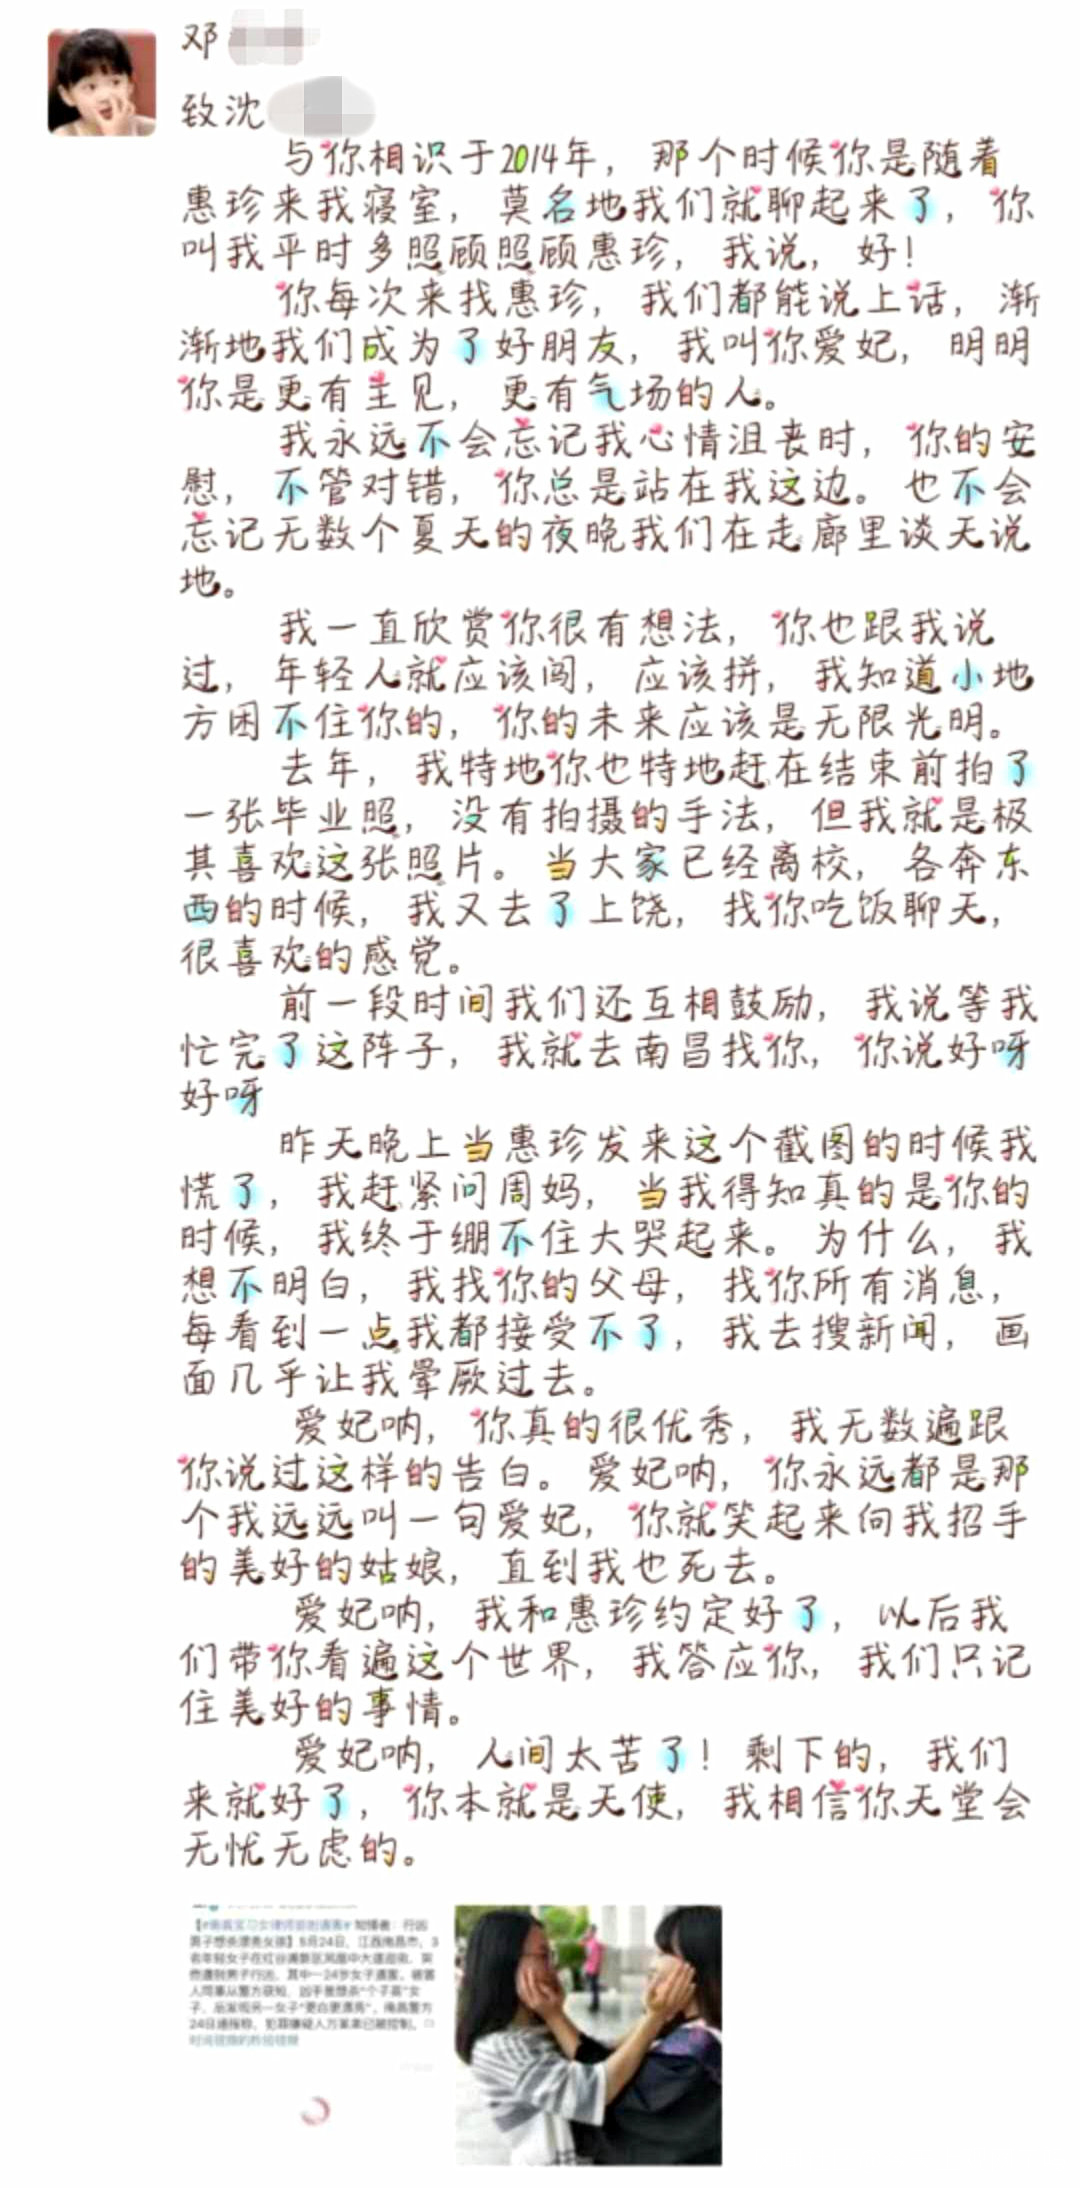 邓
致沈
与你相识于2014年，那个时候你是随着
惠珍来我寝室，莫名地我们就聊起来了，你
叫我平时多照顾照顾惠珍，我说，好！
你每次来找惠珍，我们都能说上话，渐
渐地我们成为了好朋友，我叫你爱妃，明明
你是更有主见，更有气场的人。
我永远不会忘记我心情沮丧时，你的安
慰，不管对错，你总是站在我这边。也不会
忘记无数个夏天的夜晚我们在走廊里谈天说
地。
我一直欣赏你很有想法，你也跟我说
过，年轻人就应该闯，应该拼，我知道小地
方困不住你的，你的未来应该是无限光明。
去年，我特地你也特地赶在结束前拍了
一张毕业照，没有拍摄的手法，但我就是极
其喜欢这张照片。当大家已经离校，各奔东
西的时候，我又去了上饶，找你吃饭聊天，
很喜欢的感觉。
前一段时间我们还互相鼓励，我说等我
忙完了这阵子，我就去南昌找你，你说好呀
好呀
昨天晚上当惠珍发来这个截图的时候我
慌了，我赶紧问周妈，当我得知真的是你的
时候，我终于绷不住大哭起来。为什么，我
想不明白，我找你的父母，找你所有消息，
每看到一点我都接受不了，我去搜新闻，画
面几乎让我晕厥过去。
爱妃呐，你真的很优秀，我无数遍跟
你说过这样的告白。爱妃呐，你永远都是那
个我远远叫一句爱妃，你就笑起来向我招手
的美好的姑娘，直到我也死去。
爱妃呐，我和惠珍约定好了，以后我
们带你看遍这个世界，我答应你，我们只记
住美好的事情。
爱妃呐，人间太苦了！剩下的，我们
来就好了，你本就是天使，我相信你天堂会
无忧无虑的。
知情者：行凶
男子想杀漂亮女孩】5月24日，江西南昌市，3
名年轻女子在红谷滩新区凤凰中大道逛街，突
然遭到男子行凶，其中一24岁女子遇害。被害
人同事从警方获知，凶手曾想杀“个子高”女
子，后发现另一女子“更白更漂亮”，南昌警方
24日通报称，犯罪嫌疑人万某弟已被控制。